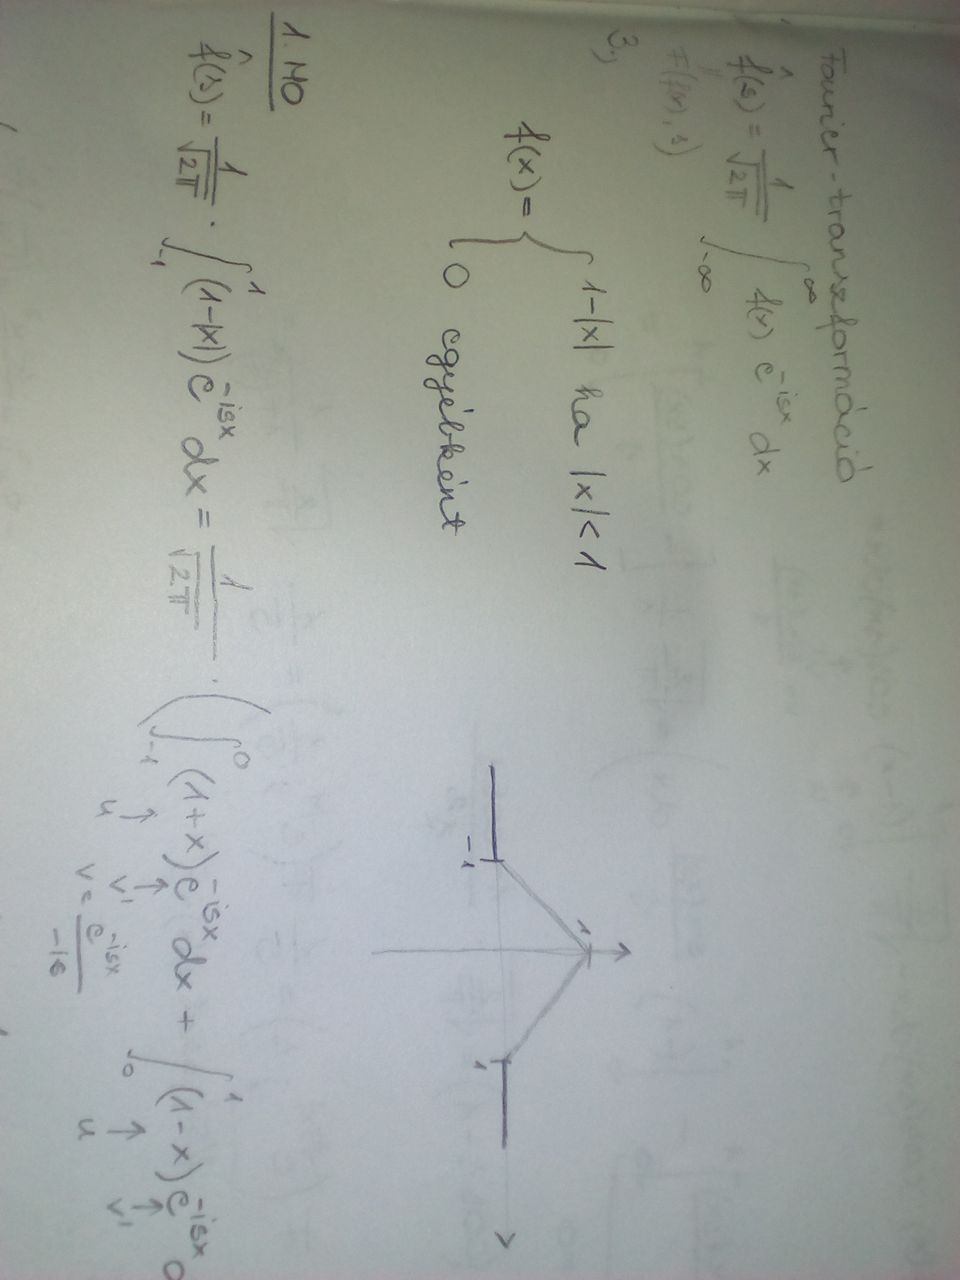 Fourier-transzformáció
f̂(s) = 1/√2π ∫_{-∞}^{∞} f(x) e^{-isx} dx
F(f(x), s)
3.,
f(x) = { 1-|x| ha |x| < 1
0 egyébként
1
-1 1
1. MO
f̂(s) = 1/√2π · ∫_{-1}^{1} (1-|x|) e^{-isx} dx = 1/√2π · ( ∫_{-1}^{0} (1+x) e^{-isx} dx + ∫_{0}^{1} (1-x) e^{-isx}
u v' u v'
v = e^{-isx}/-is